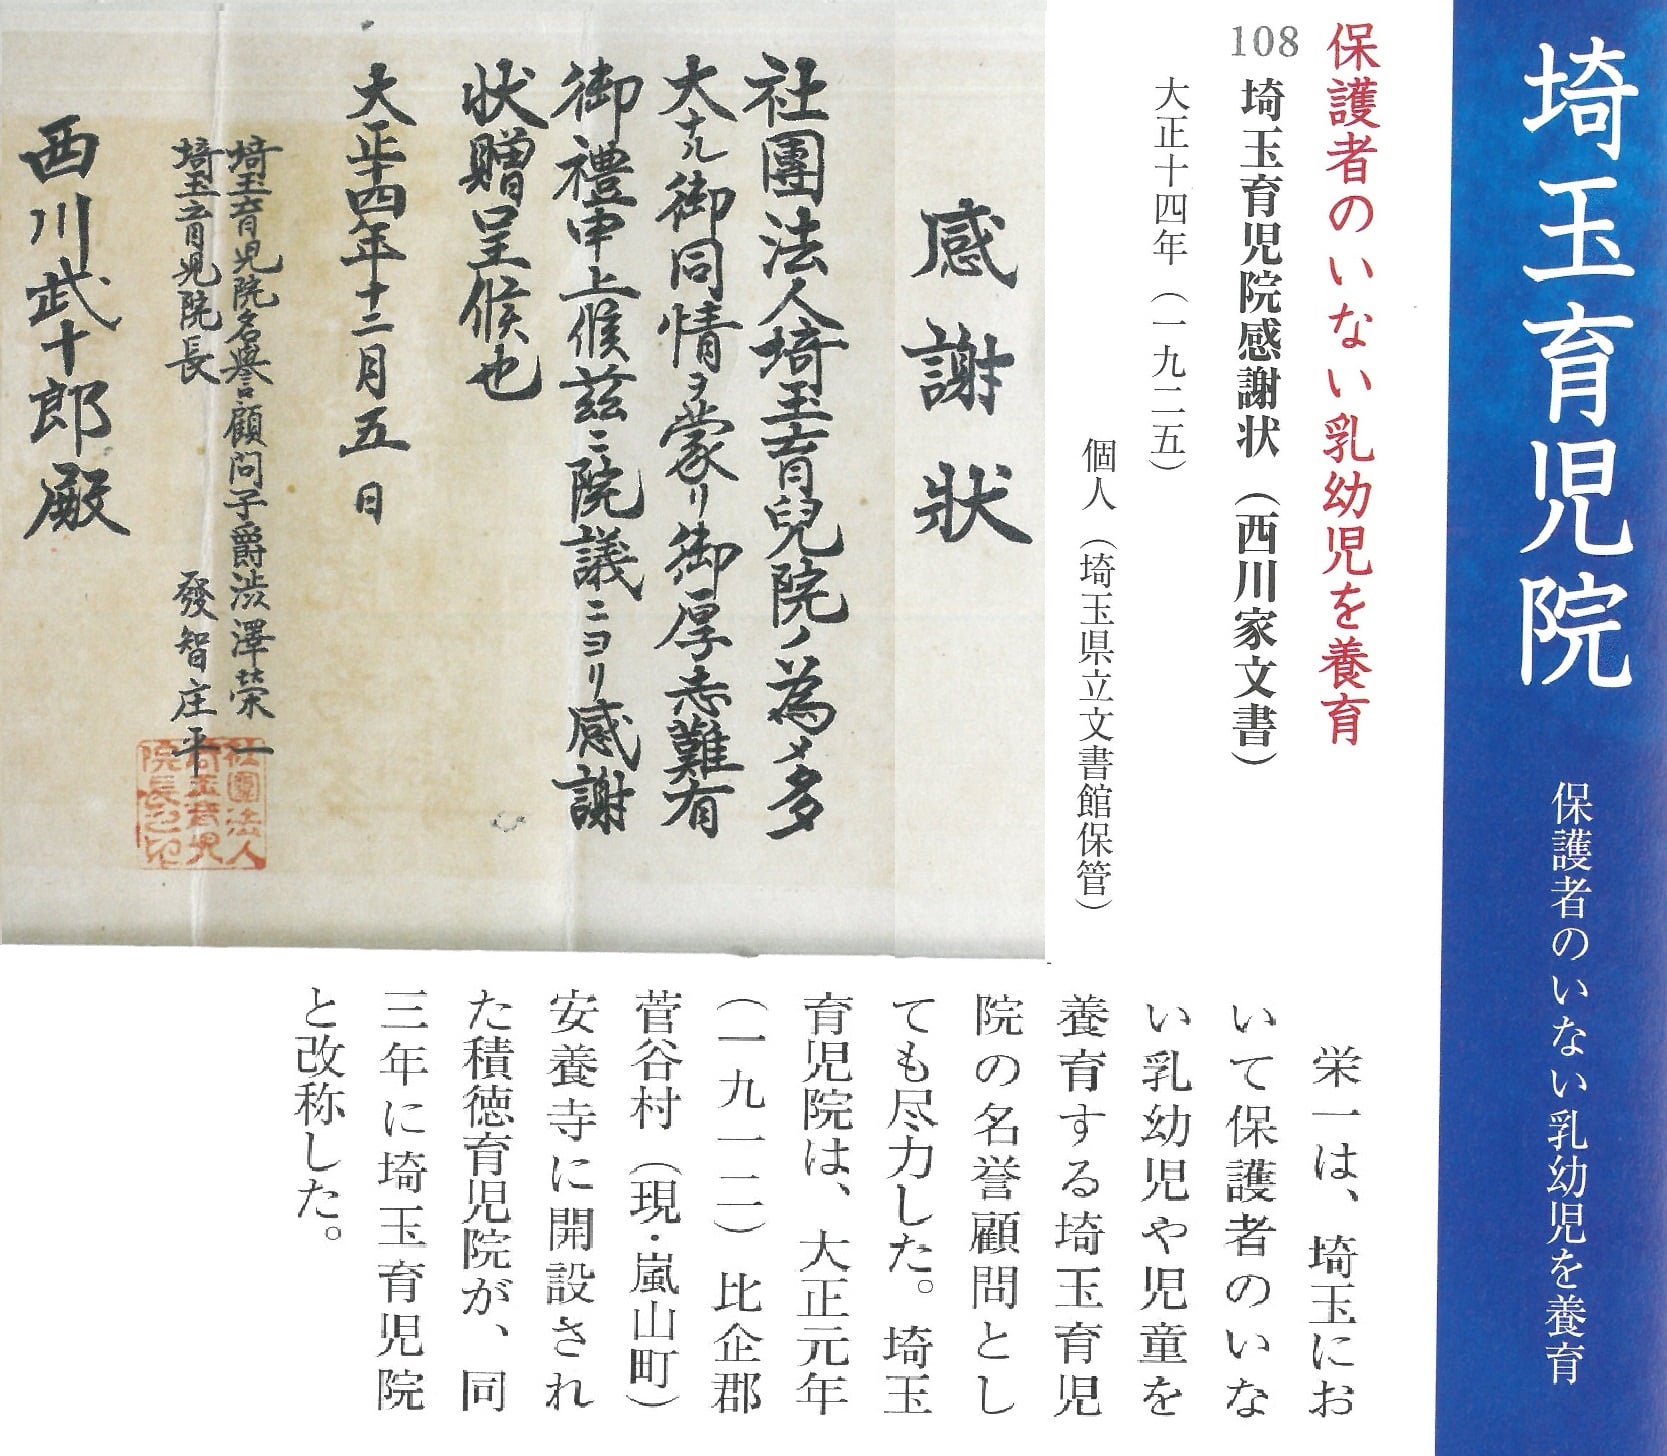 埼玉育児院
保護者のいない乳幼児を養育
保護者のいない乳幼児を養育
108 埼玉育児院感謝状（西川家文書）
大正十四年（一九二五）
個人（埼玉県立文書館保管）
感謝状
社團法人埼玉育兒院ノ為メ多
大ナル御同情ヲ蒙リ御厚志難有
御禮申上候茲ニ院議ニヨリ感謝
状贈呈候也
大正十四年十二月五日
埼玉育児院名譽顧問子爵渋澤榮一
埼玉育児院長 發智庄平
社團法人
埼玉育児
院長之印
西川武十郎殿
栄一は、埼玉にお
いて保護者のいな
い乳幼児や児童を
養育する埼玉育児
院の名誉顧問とし
ても尽力した。埼玉
育児院は、大正元年
（一九一二）比企郡
菅谷村（現・嵐山町）
安養寺に開設され
た積徳育児院が、同
三年に埼玉育児院
と改称した。